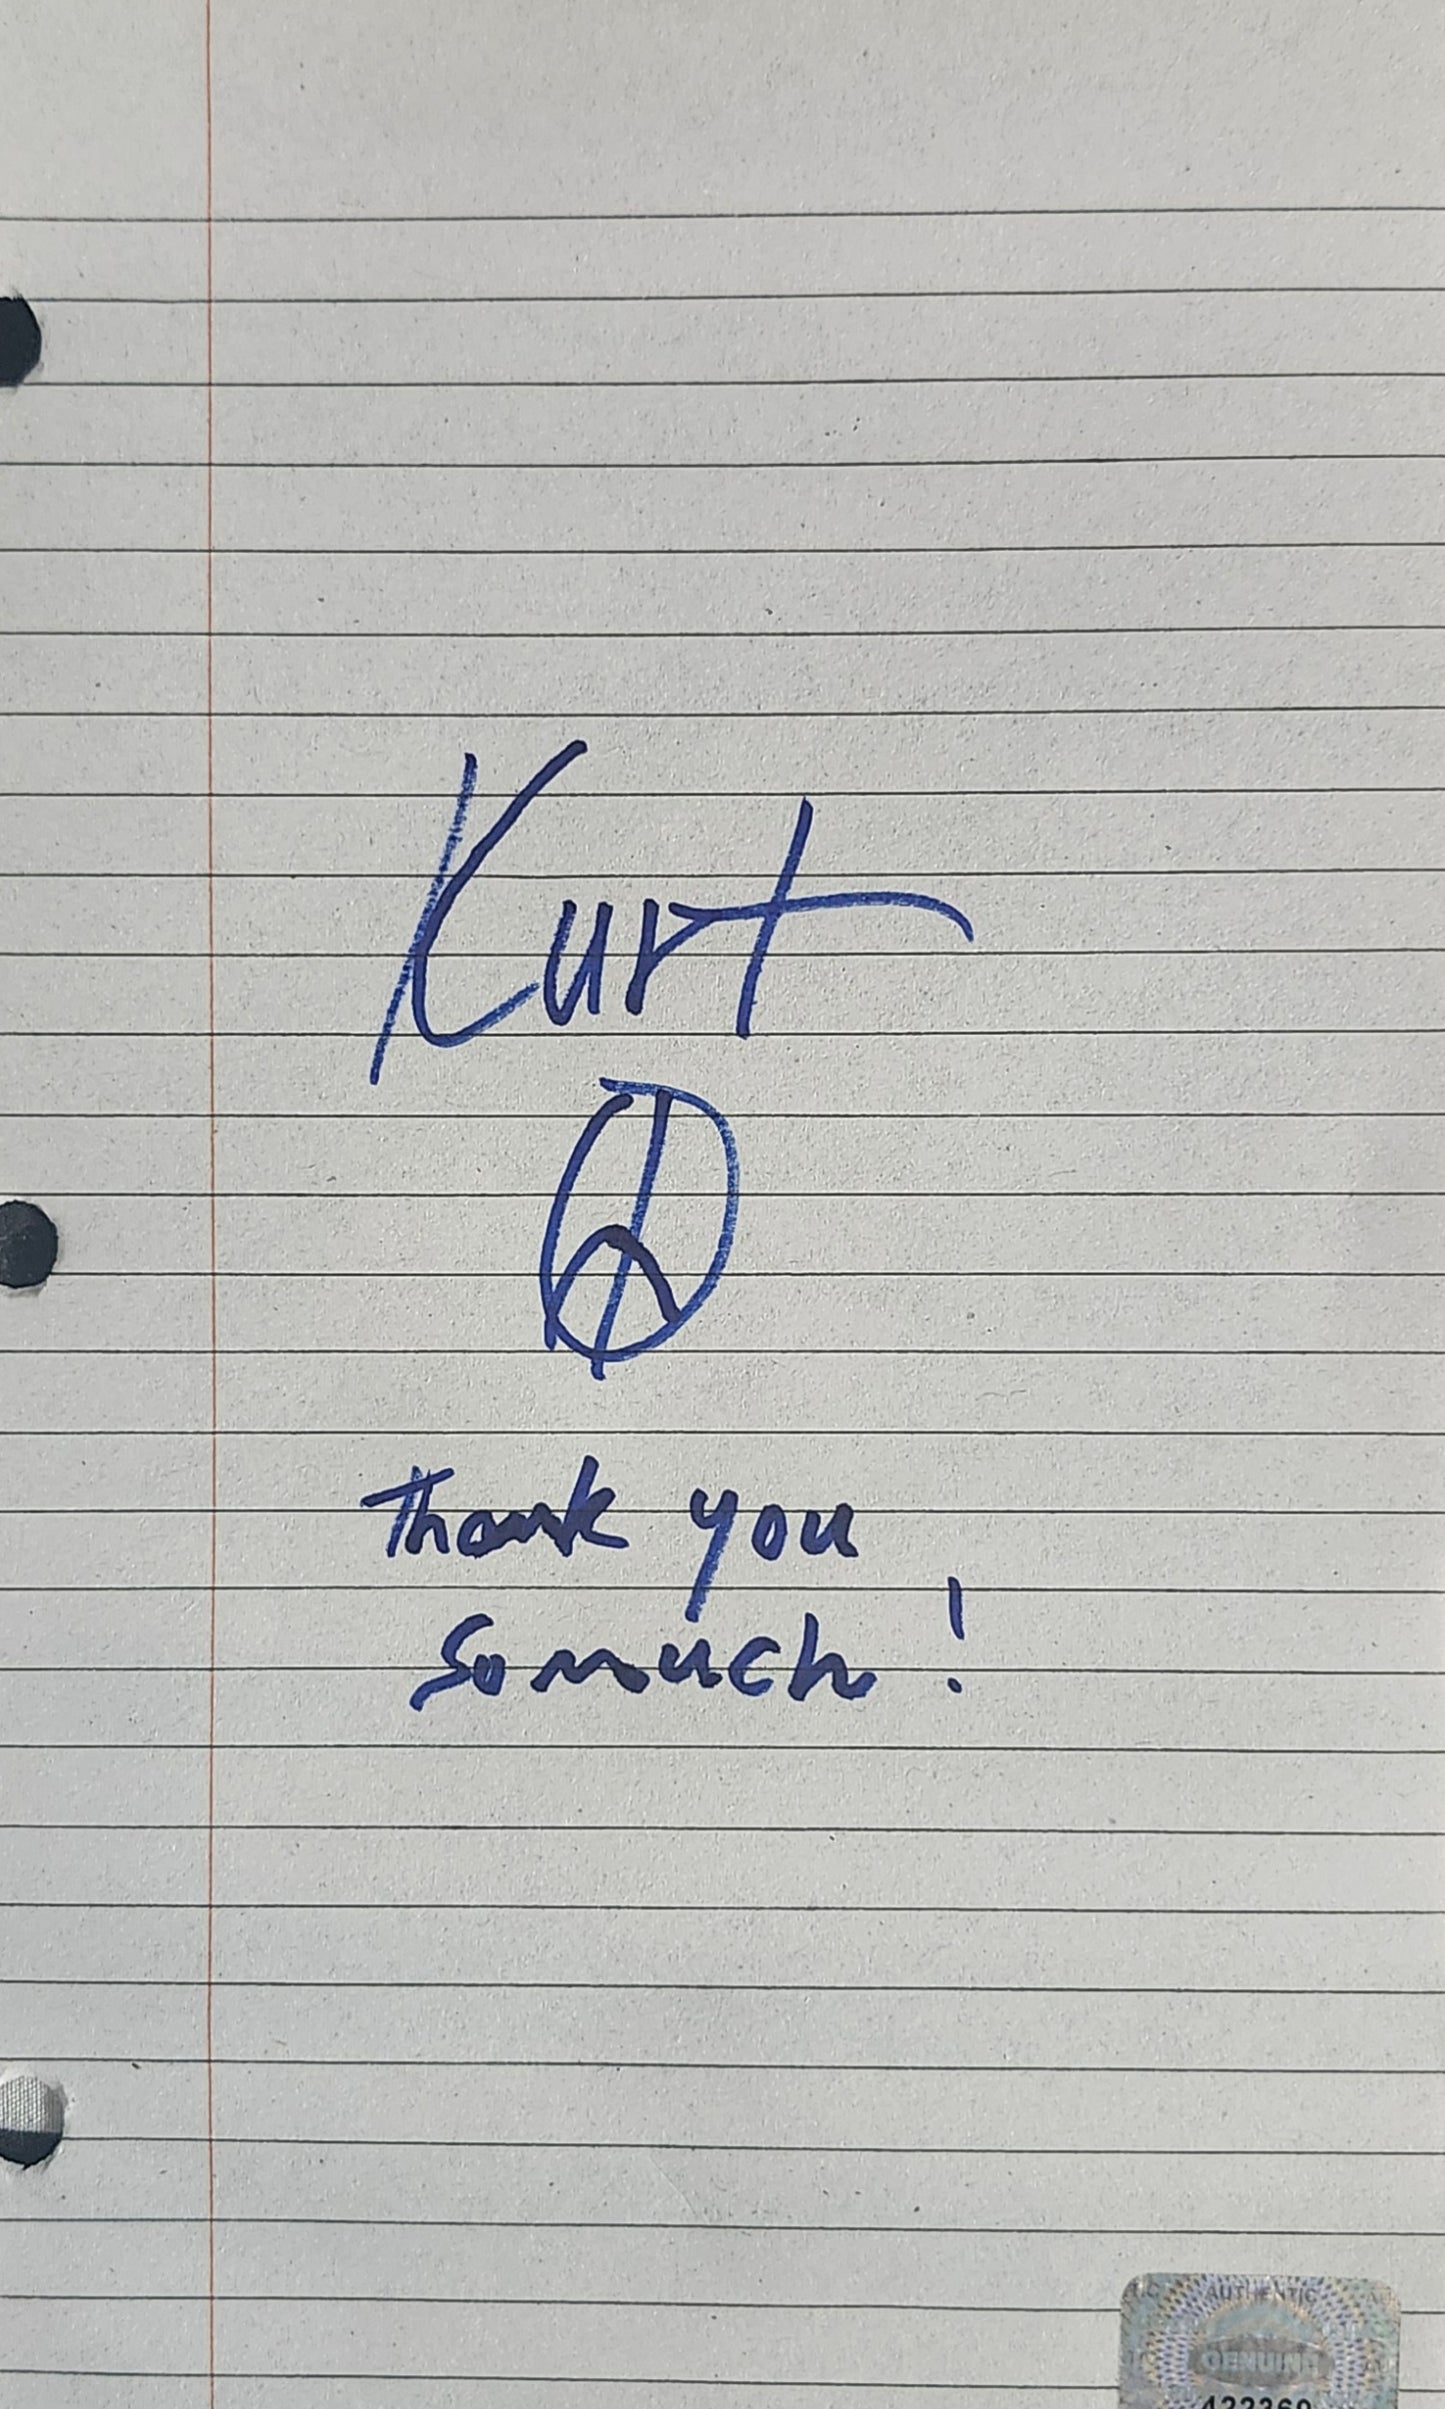 Kurt
Thank you
so much!
AUTHENTIC
GENUINE